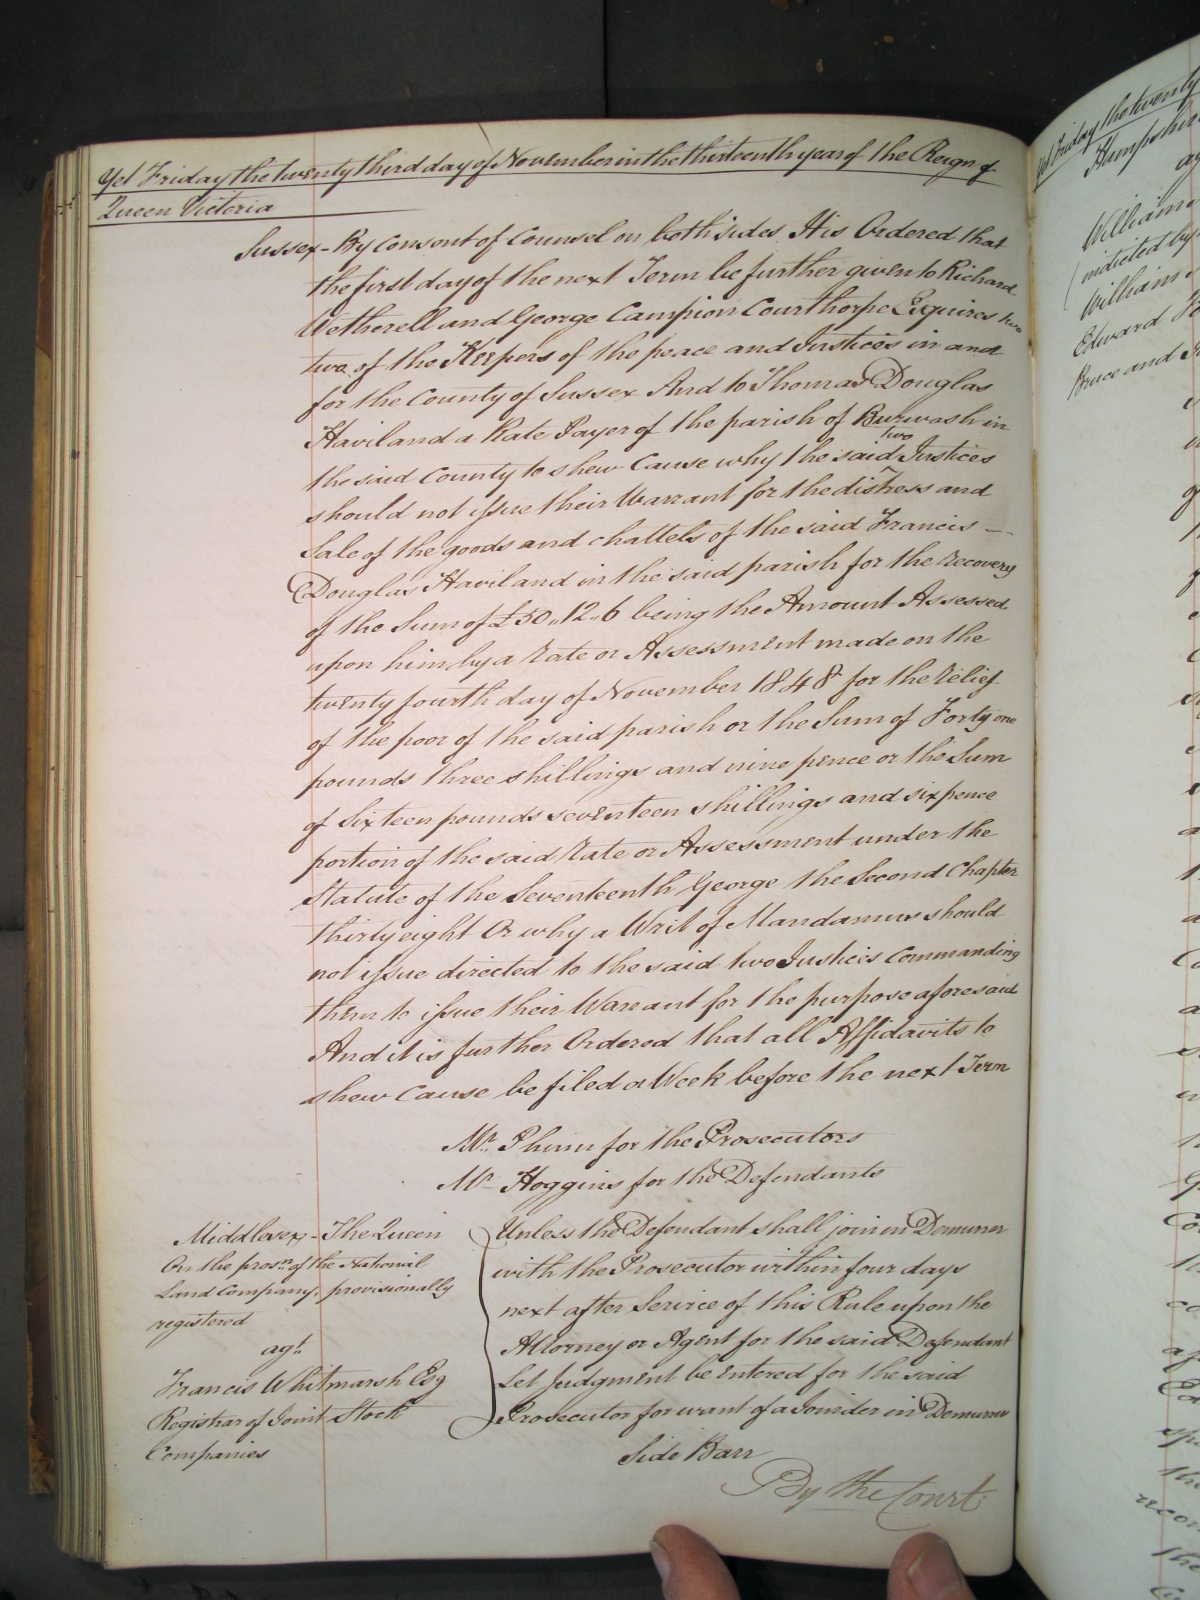 Yet Friday the twenty third day of November in the thirteenth year of the Reign of
Queen Victoria
Sussex - By Consent of Counsel on both sides It is Ordered that
the first day of the next Term be further given to Richard
Wetherell and George Campion Courthorpe Esquires two
two of the Keepers of the peace and Justices in and
for the County of Sussex And to Thomas Douglas
Haviland a Rate Payer of the parish of Burwash in
the said County to shew Cause why the said two Justices
should not issue their Warrant for the distress and
Sale of the goods and chattels of the said Francis
Douglas Haviland in the said parish for the recovery
of the Sum of £50,,12,,6 being the Amount Assessed
upon him by a Rate or Assessment made on the
twenty fourth day of November 1848 for the relief
of the poor of the said parish or the Sum of Forty one
pounds three shillings and nine pence or the Sum
of Sixteen pounds seventeen shillings and sixpence
portion of the said Rate or Assessment under the
Statute of the Seventeenth George the Second Chapter
thirty eight Or why a Writ of Mandamus should
not issue directed to the said two Justices Commanding
them to issue their Warrant for the purpose aforesaid
And it is further Ordered that all Affidavits to
shew Cause be filed a Week before the next Term
Mr. Phinn for the Prosecutors
Mr Hoggins for the Defendants
Middlesex - The Queen
On the pros.n of the National
Land Company, provisionally
registered
agt.
Francis Whitmarsh Esq
Registrar of Joint Stock
Companies
Unless the Defendant shall join in Demurrer
with the Prosecutor within four days
next after Service of this Rule upon the
Attorney or Agent for the said Defendant
Let Judgment be entered for the said
Prosecutor for want of a Joinder in Demurrer
Side Barr
By the Court
Yet Friday the twenty
Hampshire
William
indicted by
William
Edward
Bruce and